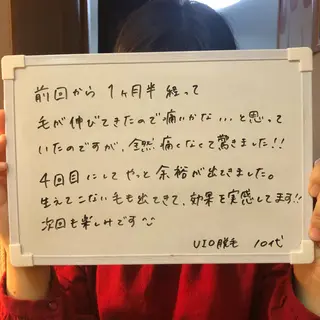 前回から1ヶ月半経って
毛が伸びてきたので痛いかな…と思って
いたのですが、全然痛くなくて驚きました!!
4回目にしてやっと余裕が出てきました。
生えてこない毛も出てきて、効果を実感してます!!
次回も楽しみです
VIO脱毛 10代